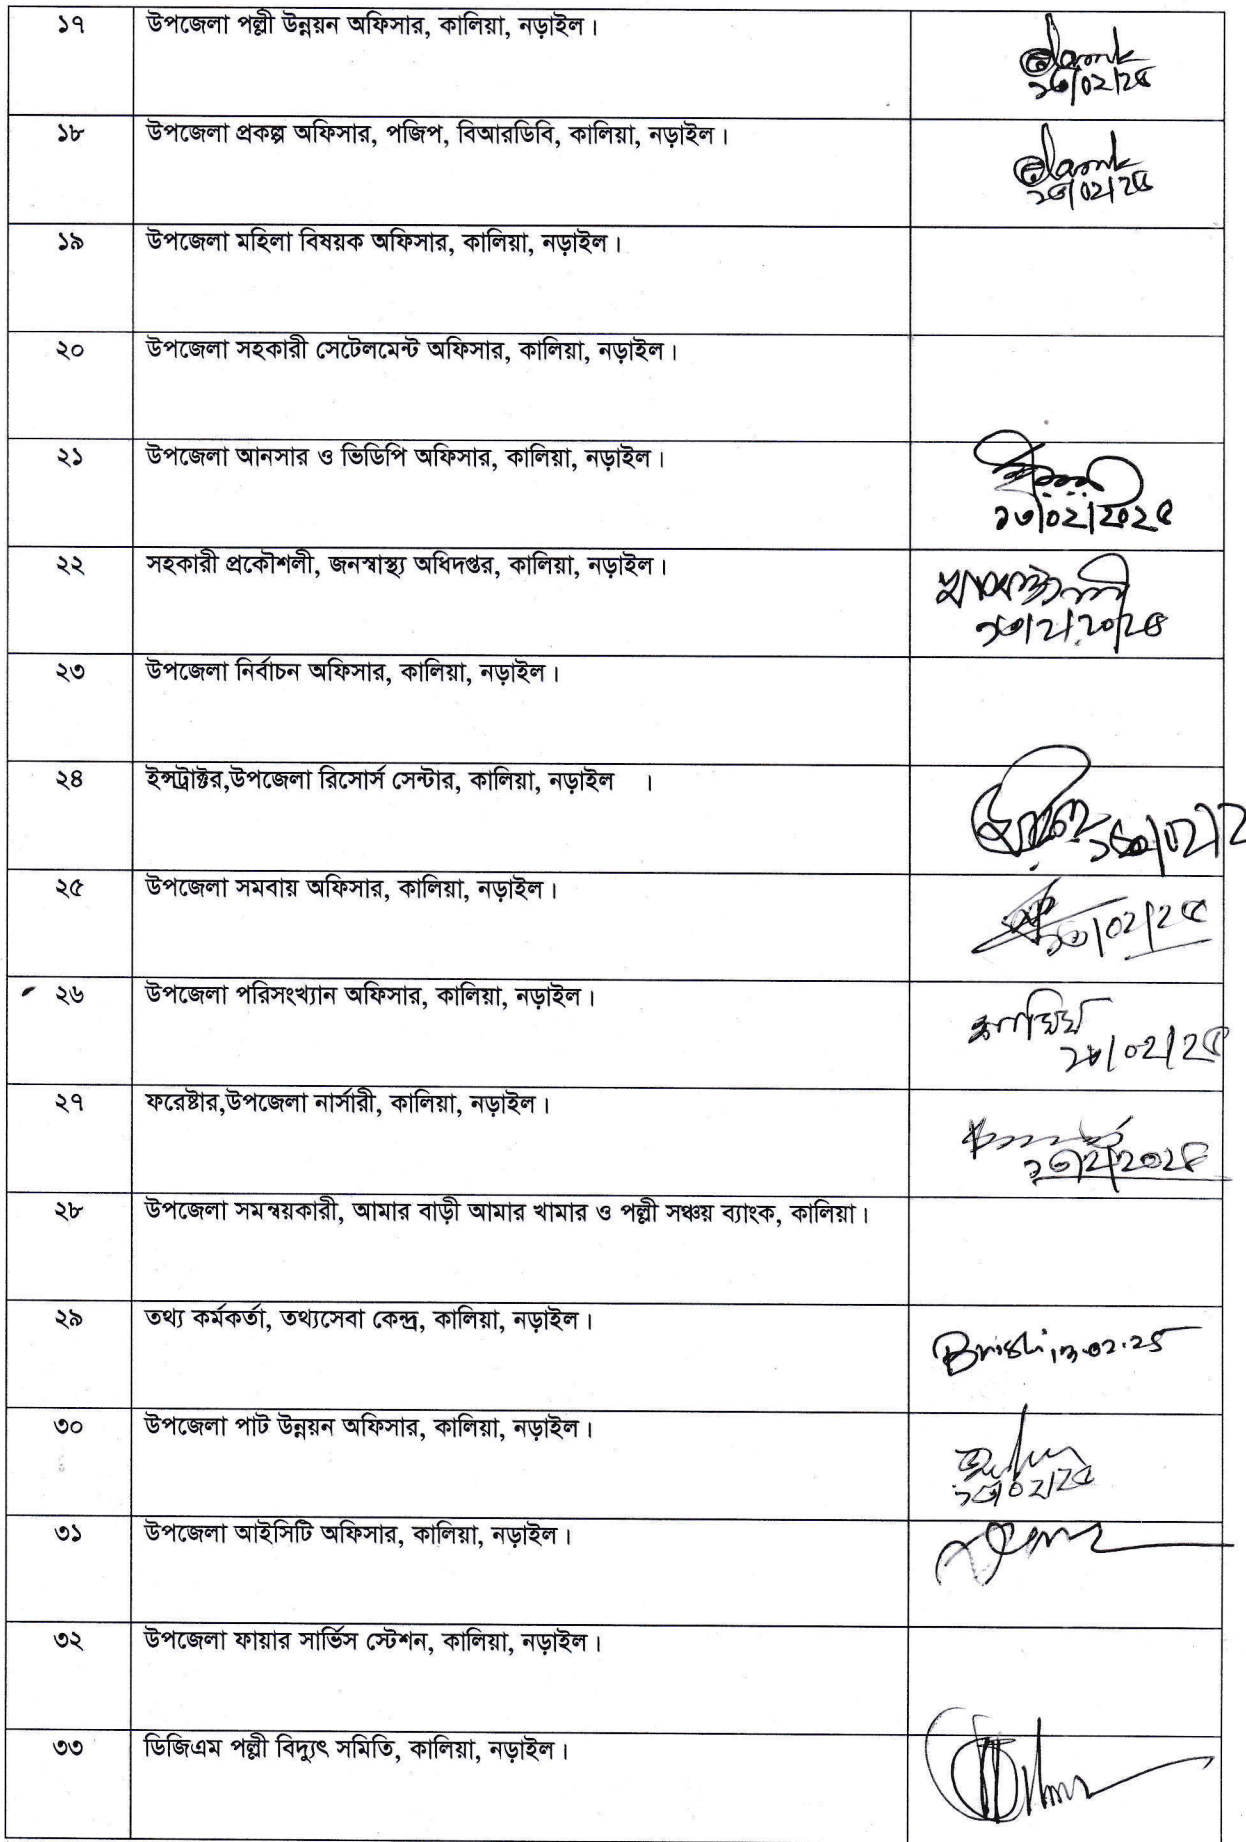 ১৭ উপজেলা পল্লী উন্নয়ন অফিসার, কালিয়া, নড়াইল।
১৩/০২/২৫
১৮ উপজেলা প্রকল্প অফিসার, পজিপ, বিআরডিবি, কালিয়া, নড়াইল।
১৩/০২/২৫
১৯ উপজেলা মহিলা বিষয়ক অফিসার, কালিয়া, নড়াইল।
২০ উপজেলা সহকারী সেটেলমেন্ট অফিসার, কালিয়া, নড়াইল।
২১ উপজেলা আনসার ও ভিডিপি অফিসার, কালিয়া, নড়াইল।
১৩/০২/২০২৫
২২ সহকারী প্রকৌশলী, জনস্বাস্থ্য অধিদপ্তর, কালিয়া, নড়াইল।
১৩/২/২০২৫
২৩ উপজেলা নির্বাচন অফিসার, কালিয়া, নড়াইল।
২৪ ইন্সট্রাক্টর,উপজেলা রিসোর্স সেন্টার, কালিয়া, নড়াইল ।
২৫ উপজেলা সমবায় অফিসার, কালিয়া, নড়াইল।
১৩/০২/২৫
২৬ উপজেলা পরিসংখ্যান অফিসার, কালিয়া, নড়াইল।
২৭ ফরেষ্টার,উপজেলা নার্সারী, কালিয়া, নড়াইল।
১৩/২/২০২৫
২৮ উপজেলা সমন্বয়কারী, আমার বাড়ী আমার খামার ও পল্লী সঞ্চয় ব্যাংক, কালিয়া।
২৯ তথ্য কর্মকর্তা, তথ্যসেবা কেন্দ্র, কালিয়া, নড়াইল।
13.02.25
৩০ উপজেলা পাট উন্নয়ন অফিসার, কালিয়া, নড়াইল।
১৩/০২/২৫
৩১ উপজেলা আইসিটি অফিসার, কালিয়া, নড়াইল।
৩২ উপজেলা ফায়ার সার্ভিস স্টেশন, কালিয়া, নড়াইল।
৩৩ ডিজিএম পল্লী বিদ্যুৎ সমিতি, কালিয়া, নড়াইল।